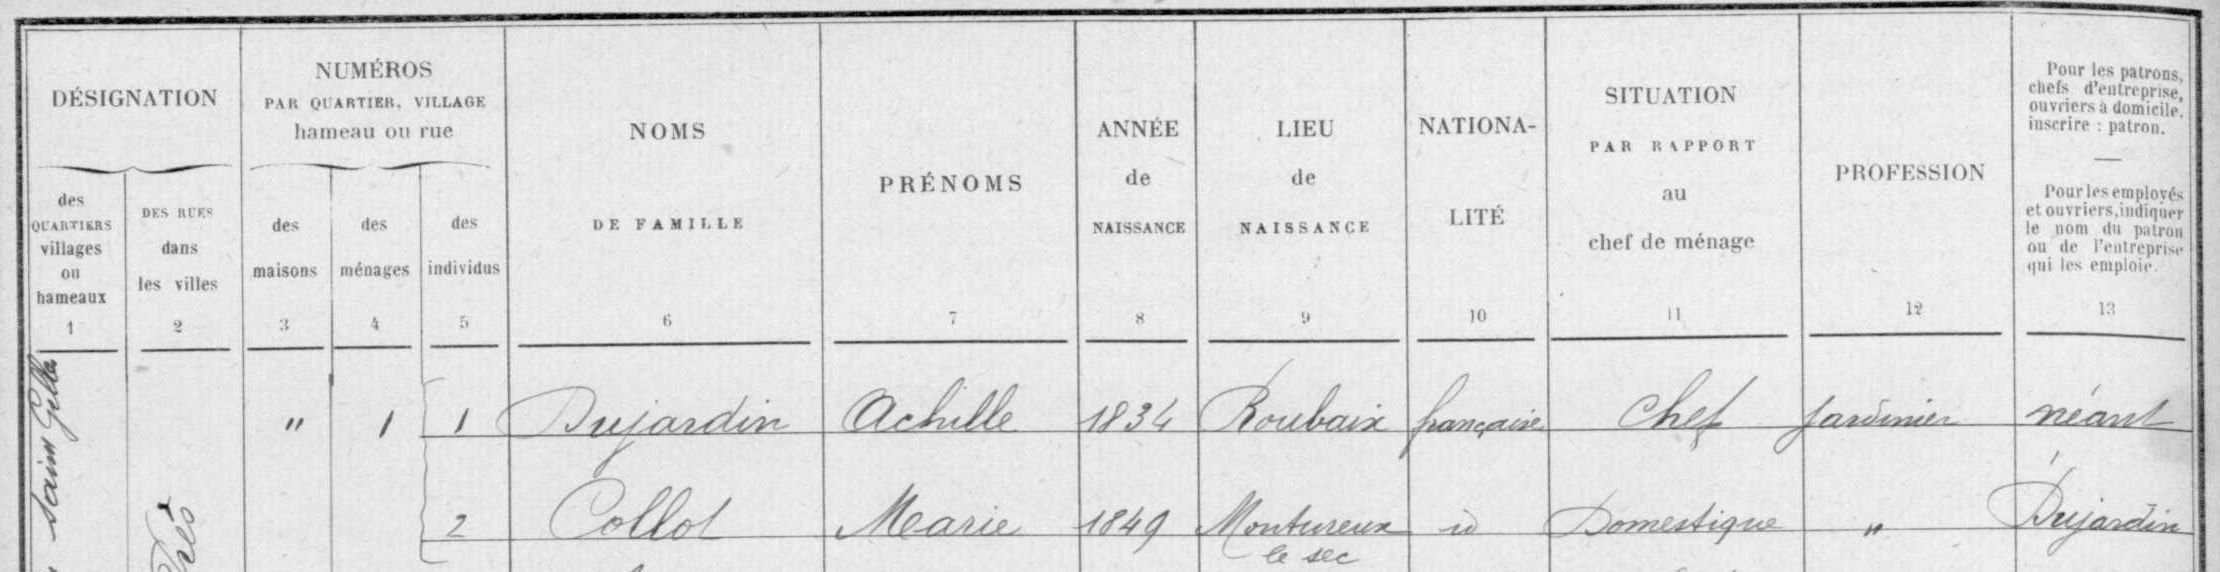 DÉSIGNATION
des
QUARTIERS
villages
ou
hameaux
1
DES RUES
dans
les villes
2
NUMÉROS
PAR QUARTIER, VILLAGE
hameau ou rue
des
maisons
3
des
ménages
4
des
individus
5
NOMS
DE FAMILLE
6
PRÉNOMS
7
ANNÉE
de
NAISSANCE
8
LIEU
de
NAISSANCE
9
NATIONA-
LITÉ
10
SITUATION
PAR RAPPORT
au
chef de ménage
11
PROFESSION
12
Pour les patrons,
chefs d'entreprise,
ouvriers à domicile,
inscrire : patron.
—
Pour les employés
et ouvriers, indiquer
le nom du patron
ou de l'entreprise
qui les emploie.
13
saint Gilles
" 1 1 Dujardin Achille 1834 Roubaix française Chef Jardinier néant
2 Collot Marie 1849 Montureux id Domestique " Dujardin
le sec